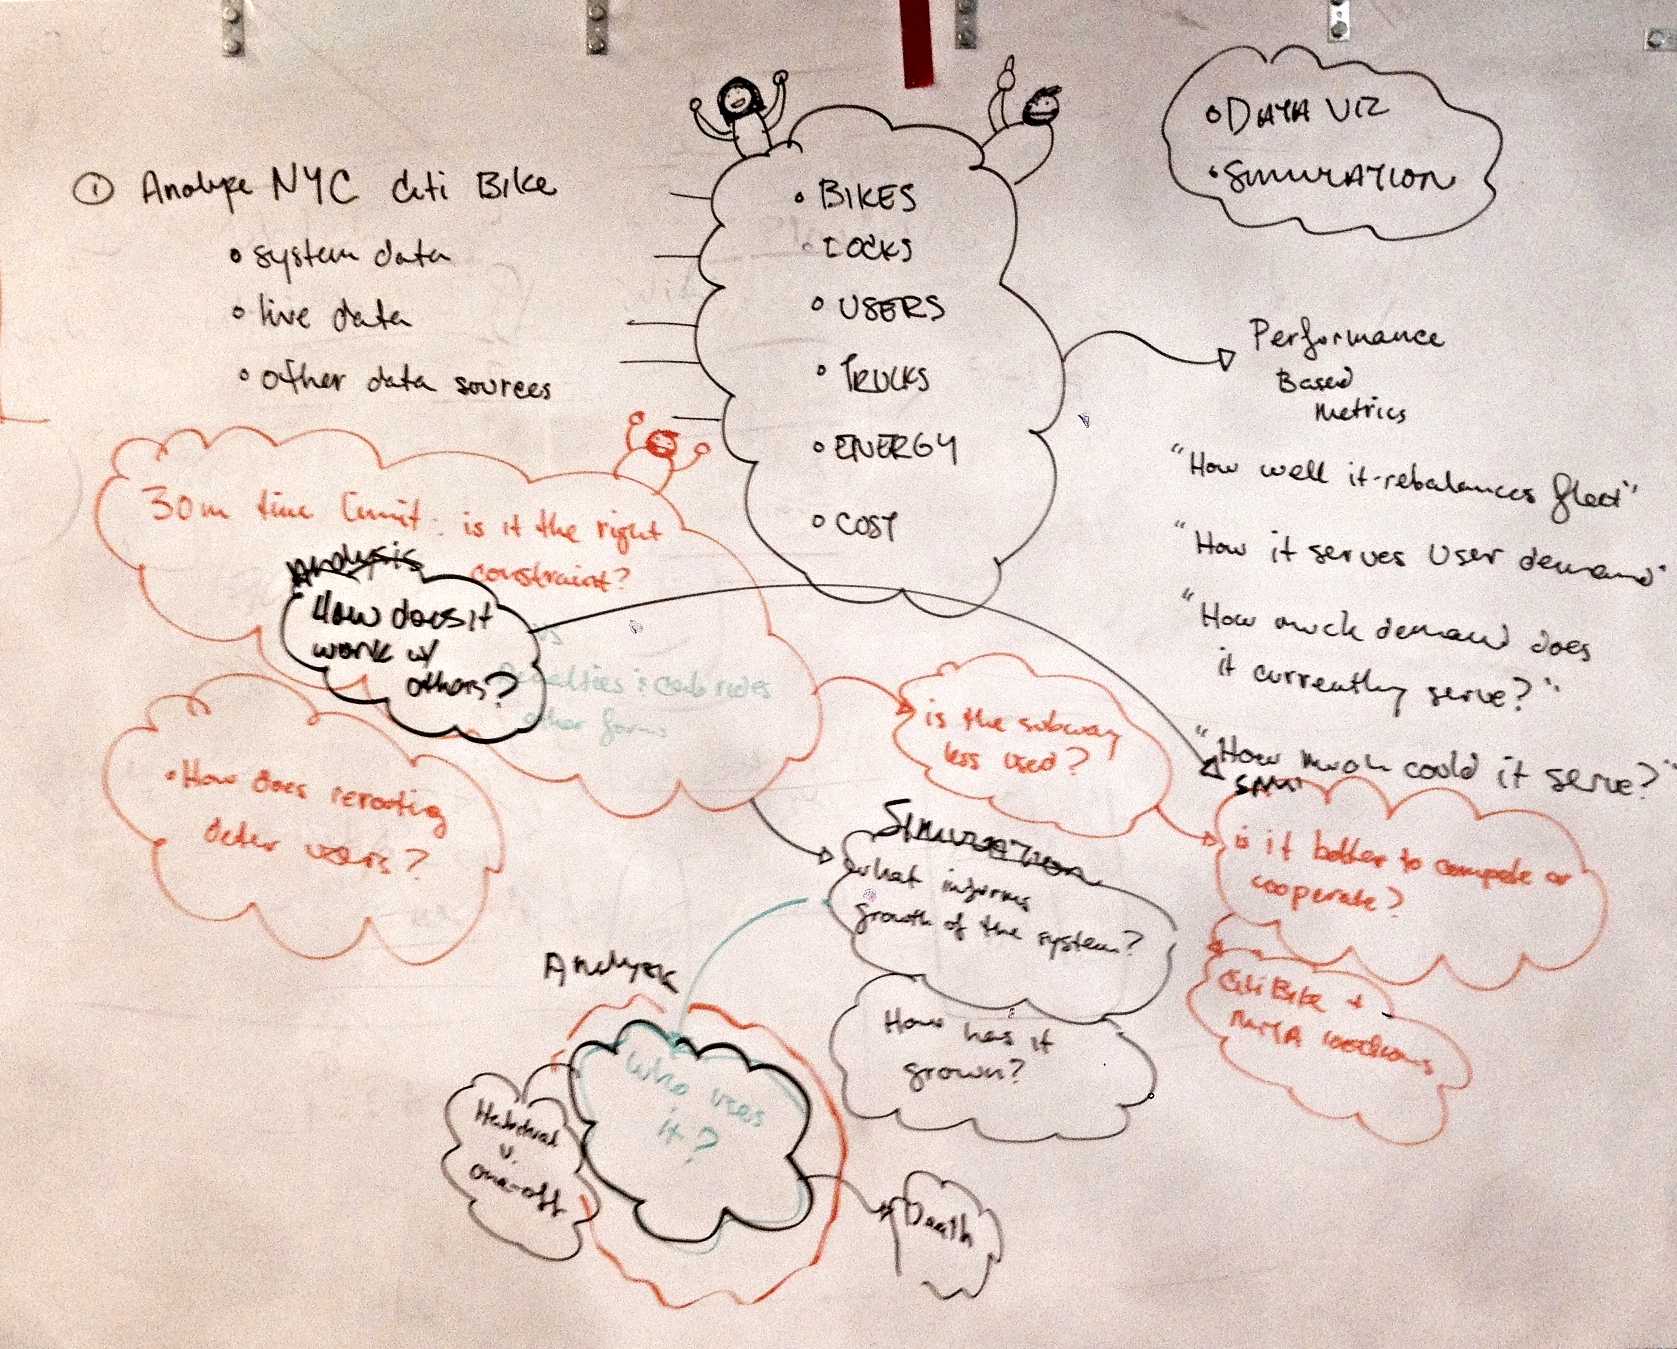 ① Analyze NYC Citi Bike
• system data
• live data
• other data sources
• BIKES
• LOCKS
• USERS
• TRUCKS
• ENERGY
• COST
• DATA VIZ
• SIMULATION
Performance
Based
Metrics
"How well it rebalances fleet"
"How it serves User demand"
"How much demand does
it currently serve?"
"How much could it serve?"
30m time limit: is it the right
constraint?
Analysis
How does it
work w/
others?
Penalties: cab rides
other forms
• How does rerouting
deter users?
is the subway
less used?
Simulation
what informs
growth of the system?
How has it
grown?
is it better to compete or
cooperate?
Citi Bike +
MTA locations
Analysis
Who uses
it?
v.
one-off
Death